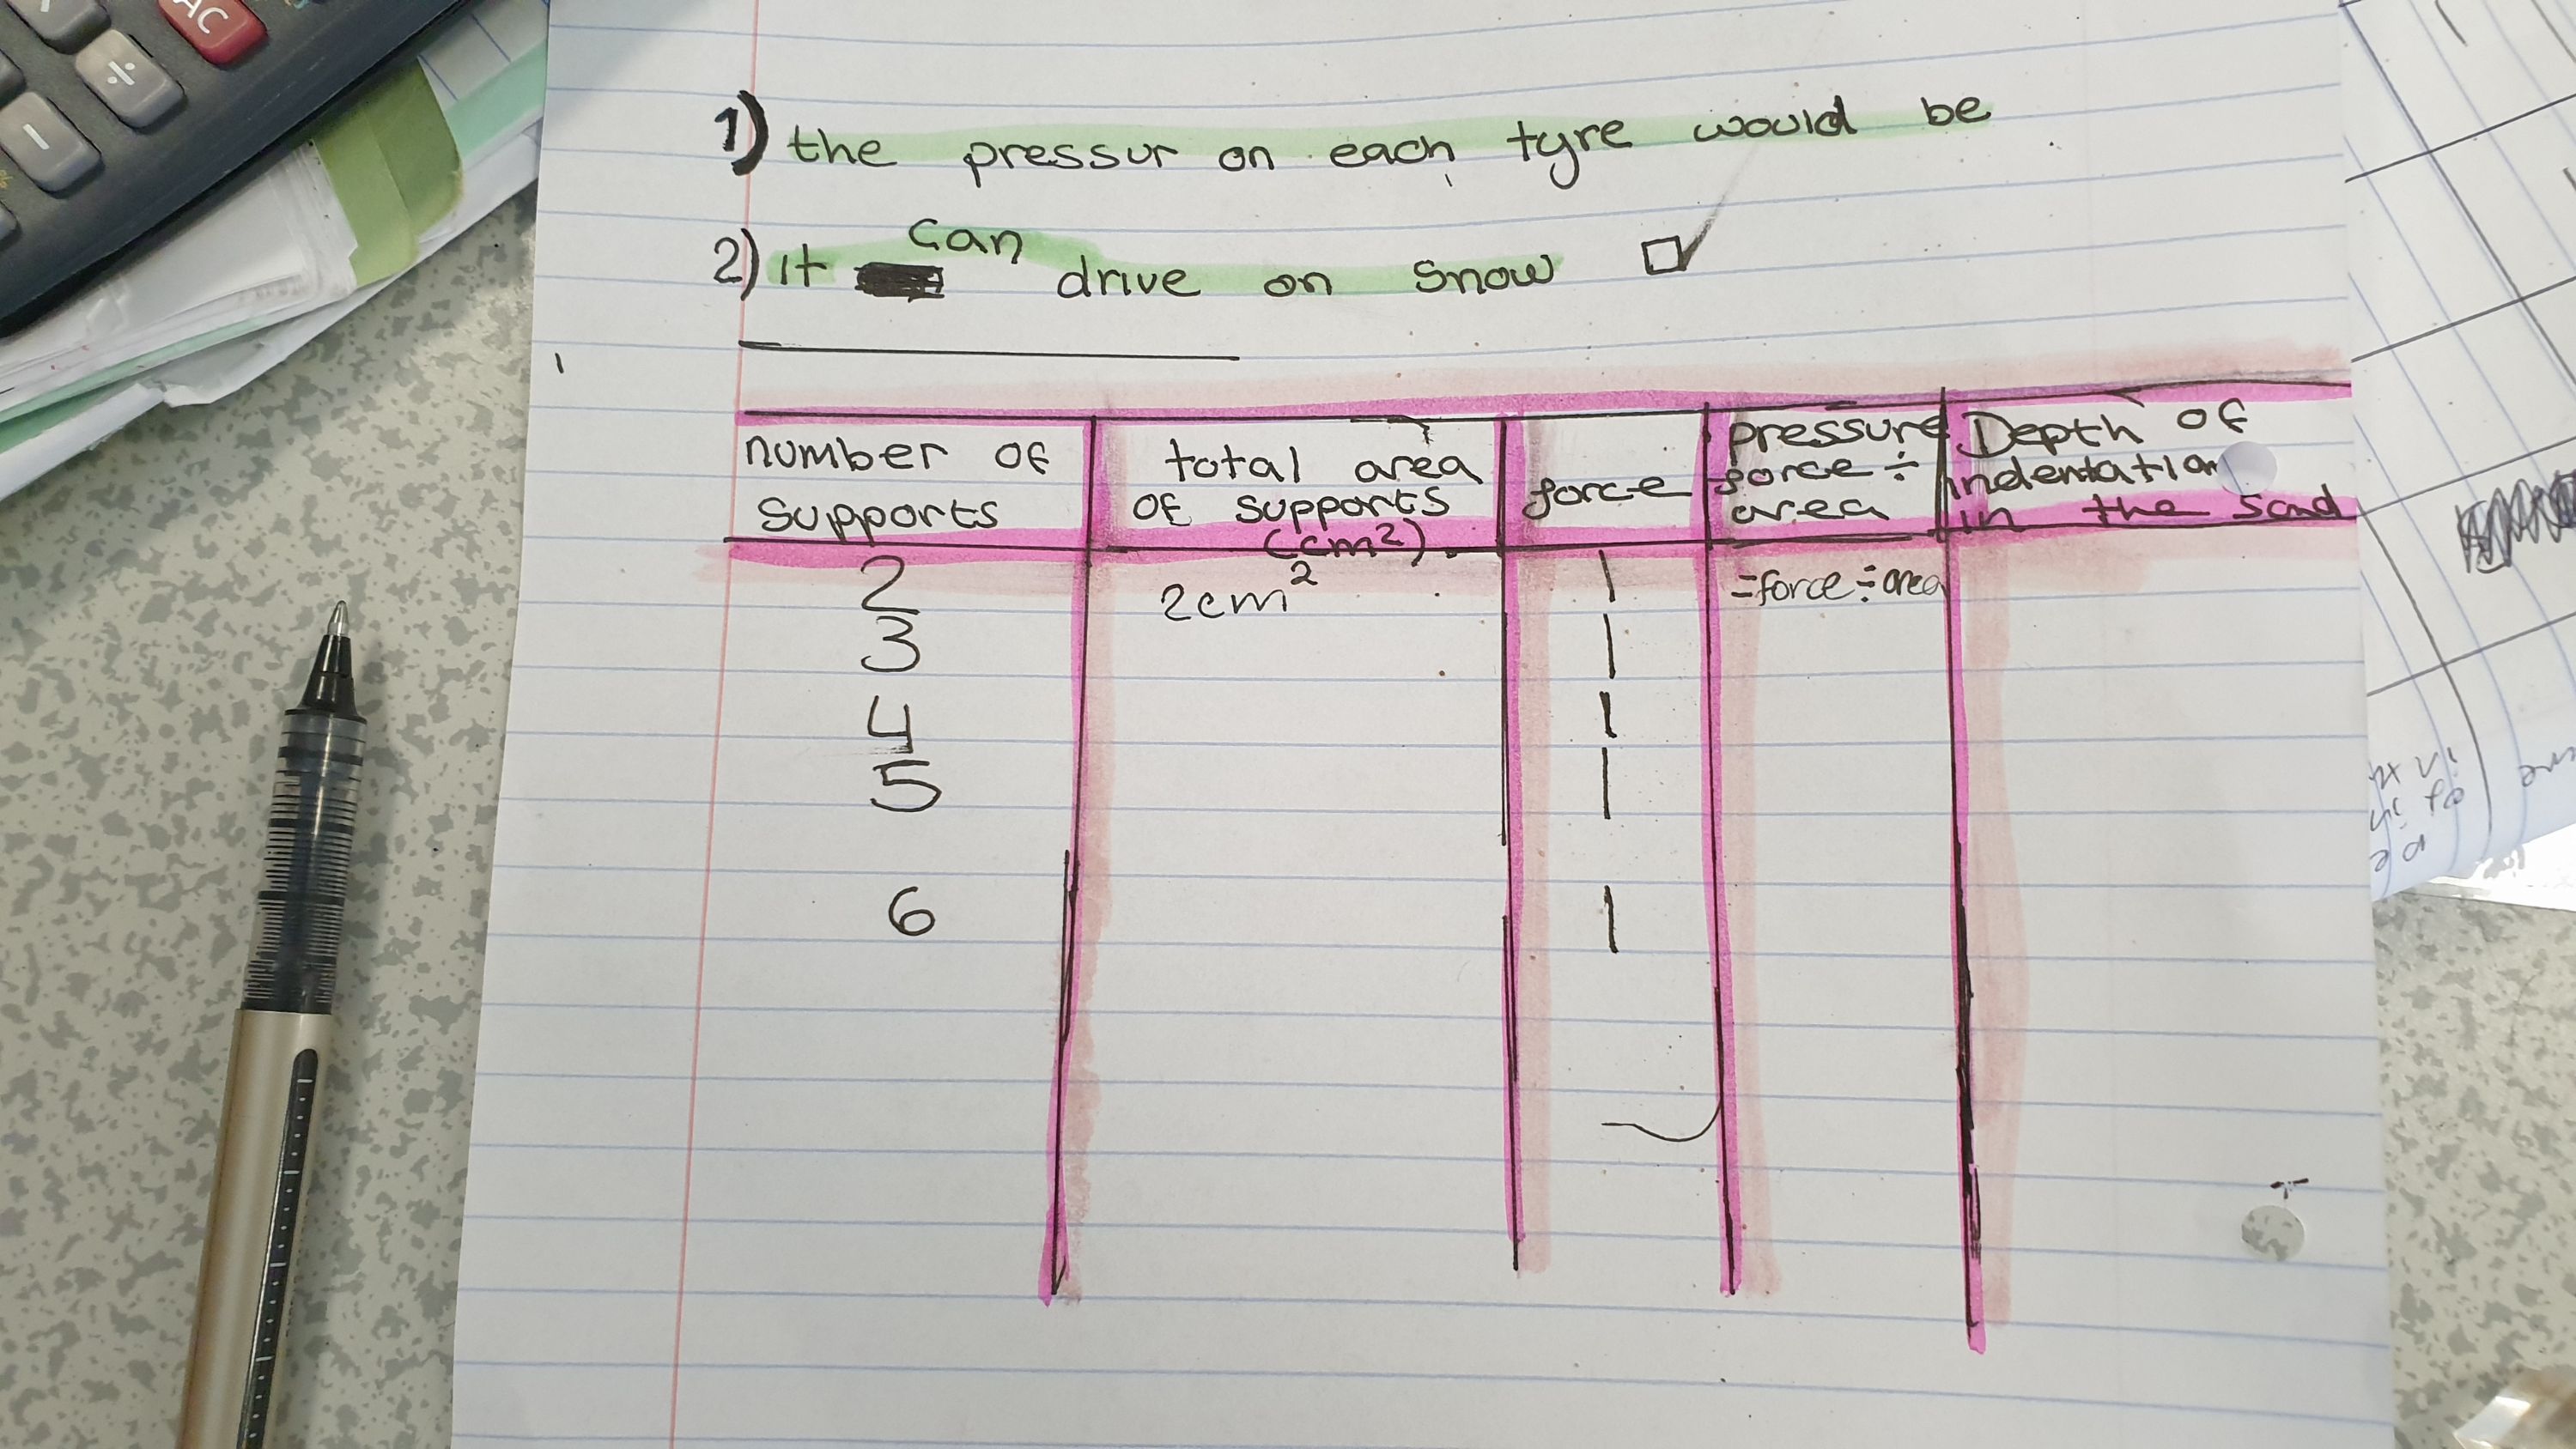 AC
÷
−
1) the pressur on each tyre would be
can
2) it drive on snow
number of supports
total area of supports (cm²)
force
pressure force ÷ area
Depth of indentation in the sand
2 2cm² 1 =force÷area
3 1
4 1
5 1
6 1